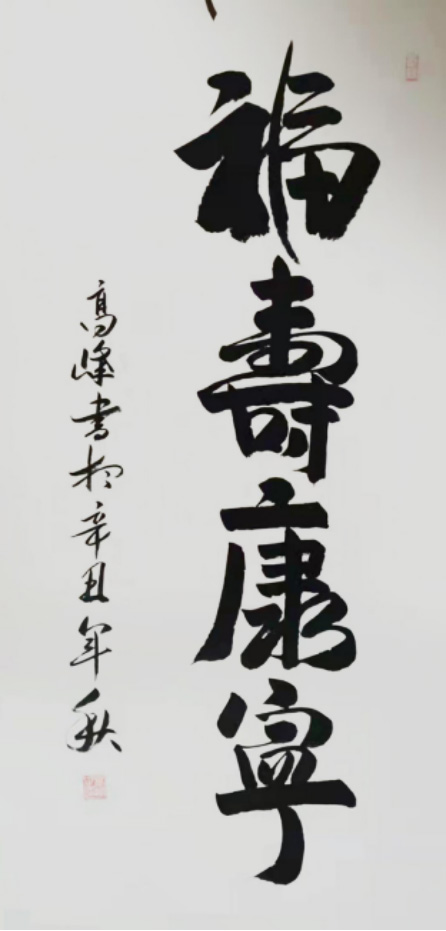 福壽康寧
高峰書於辛丑年秋